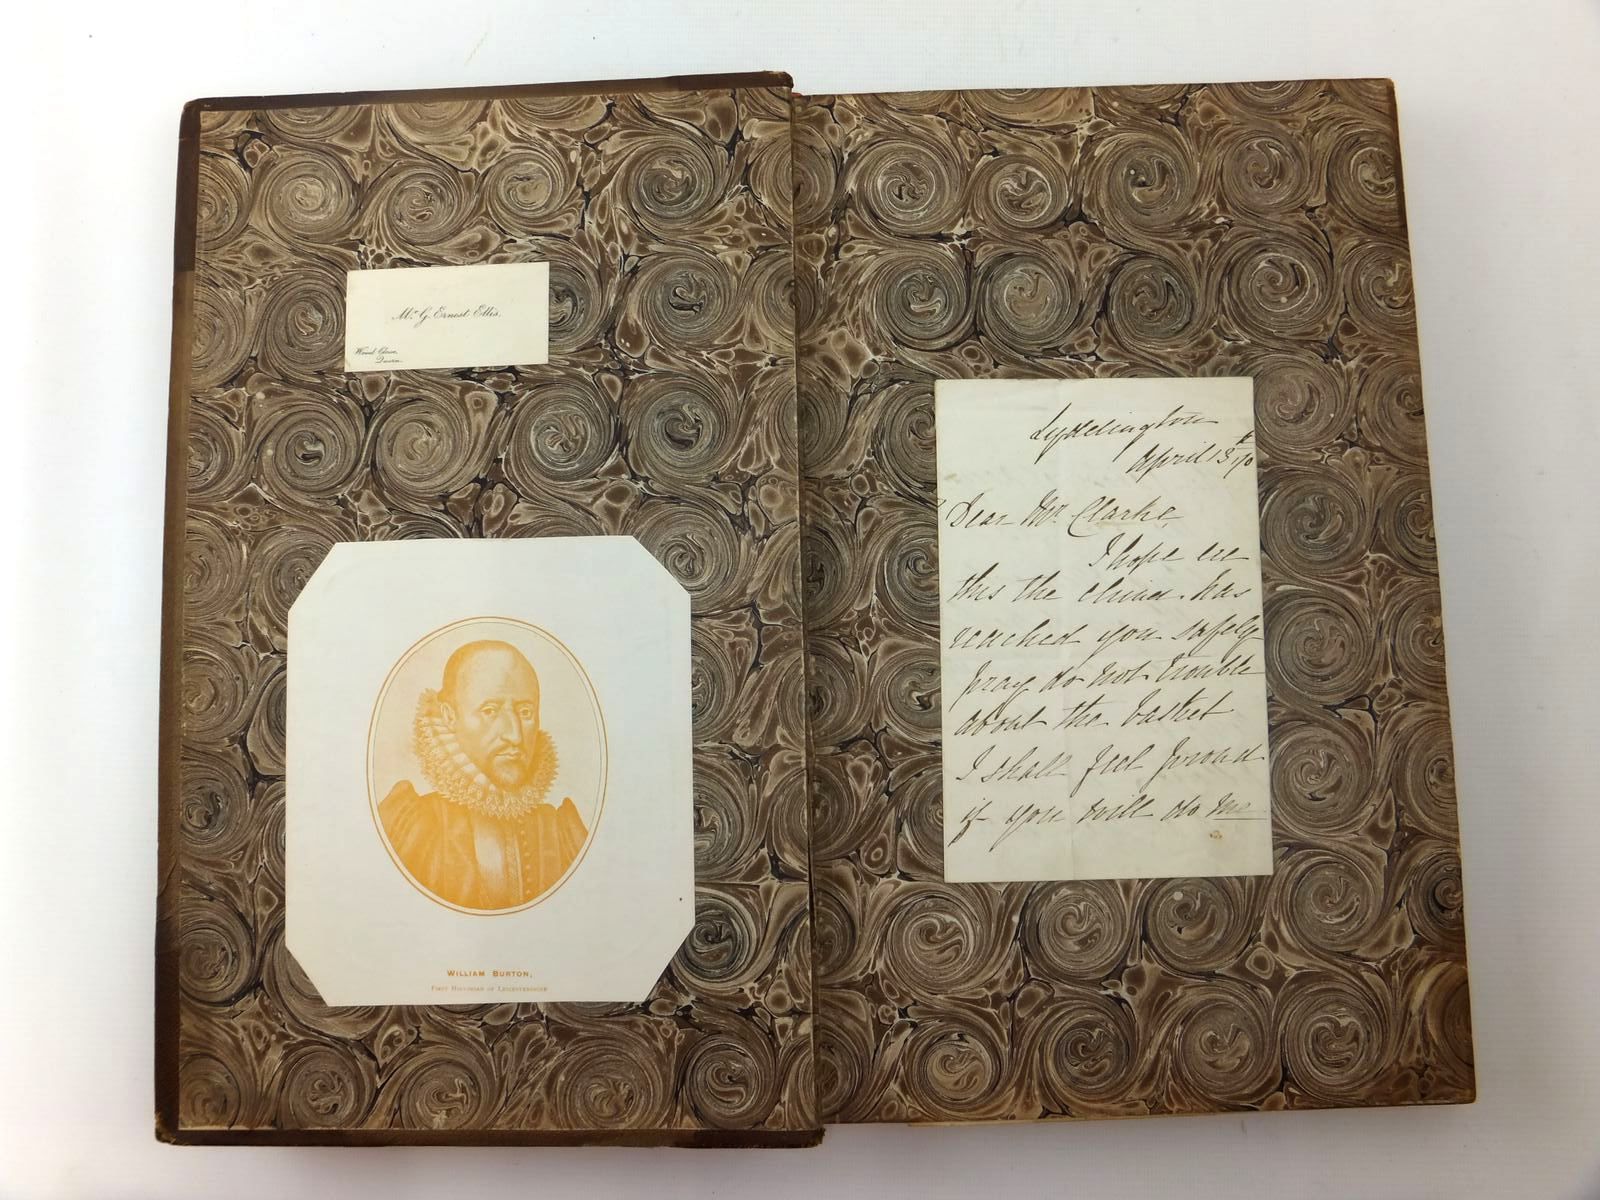 Mr. G. Ernest Ellis.
Wood Close,
Quorn.
WILLIAM BURTON,
FIRST HISTORIAN OF LEICESTERSHIRE
Lyddington
April 13th /70
Dear Mr Clarke,
I hope ere
this the china has
reached you safely
pray do not trouble
about the basket
I shall feel proud
if you will do me